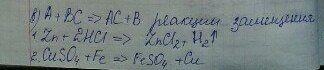 в) A + BC => AC + B реакции замещения
1. Zn + 2HCl => ZnCl₂ + H₂↑
2. CuSO₄ + Fe => FeSO₄ + Cu